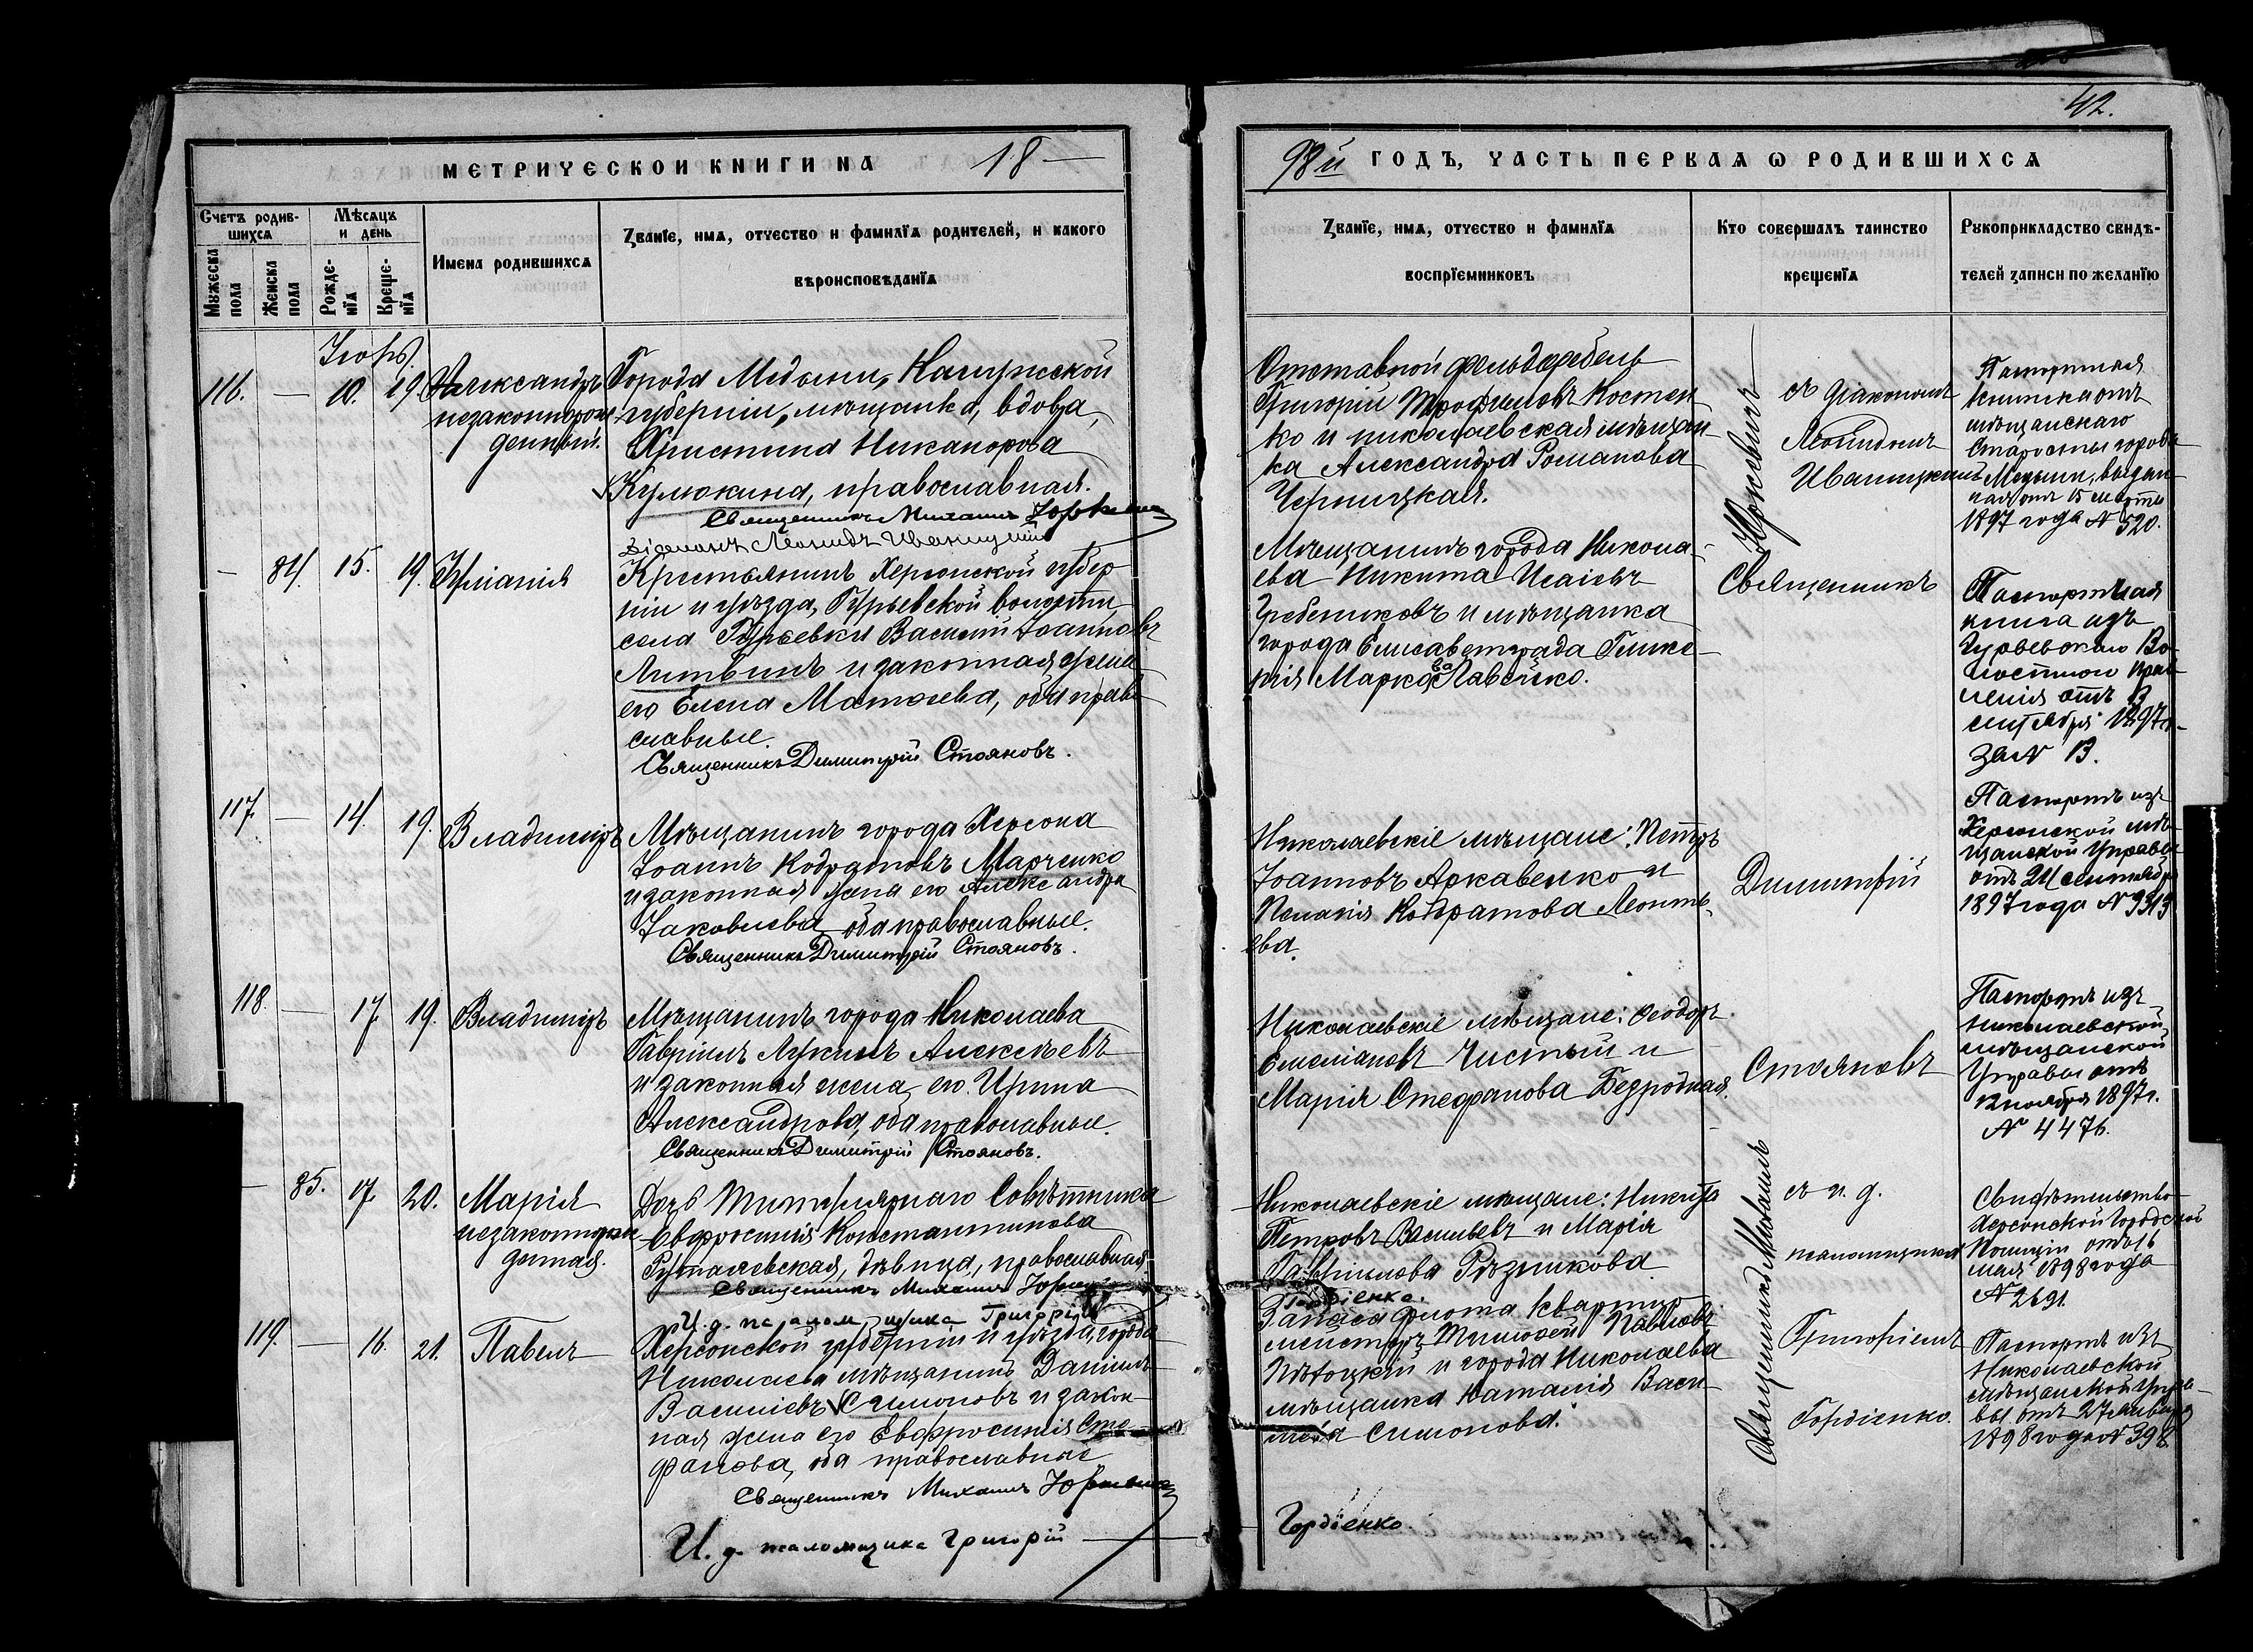 42.
МЕТРИЧЕСКОЙ КНИГИ НА 18
98й ГОДЪ, ЧАСТЬ ПЕРВАЯ Ѡ РОДИВШИХСЯ
Счетъ родив-
шихся
Мужеска пола
Женска пола
Мѣсяцъ
и день
Рожде-
нїя
Креще-
нїя
Имена родившихся
Званїе, имя, отчество и фамилїя родителей, и какого
вѣроисповѣданїя
Званїе, имя, отчество и фамилїя
воспрїемниковъ
Кто совершалъ таинство
крещенїя
Рукоприкладство свидѣ-
телей записи по желанїю
116. — 10. 19. Александръ
незаконнорож
денный.
Города Медыни, Калужской
губерніи, мѣщанка, вдова,
Христина Никанорова
Кулюкина, православная.
Священникъ Михаилъ Юркевичъ
Діаконъ Леонидъ Иваницкій
Отставной фельдфебель
Григорій Трофимовъ Костен
ко и николаевская мѣщан-
ка Александра Романова
Черницкая.
Юркевичъ
съ діакономъ
Леонидомъ
Иваницкимъ
Паспортная
книжка отъ
мѣщанскаго
Старосты города
Медыни, выдан
ная отъ 15 марта
1897 года № 520.
— 84. 15. 19. Іуліанія
Крестьянинъ Херсонской губер
ніи и уѣзда, Гурьевской волости,
села Гурьевки Василій Іоанновъ
Литвинъ и законная жена
его Елена Матѳеева, оба право
славные.
Священникъ Димитрій Стояновъ.
Мѣщанинъ города Никола-
ева Никита Исаіевъ
Гребениковъ и мѣщанка
города Елисаветграда Глике-
рія Маркова
Священникъ
Паспортная
книга изъ
Гурьевскаго Во
лостного прав
ленія отъ 3
сентября 1897 г.
за №
117. — 14. 19. Владиміръ
Мѣщанинъ города Херсона
Іоаннъ Кодратовъ Марченко
и законная жена его Александра
Іаковлева, оба православные.
Священникъ Димитрій Стояновъ.
Николаевскіе мѣщане: Петръ
Іоанновъ Аркавенко и
Пелагія Кодратова Леонть-
ева.
Димитрій
Паспортъ изъ
Херсонской мѣ
щанской Управы
отъ 24 сентября
1897 года №
118. — 17. 19. Владиміръ
Мѣщанинъ города Николаева
Гавріилъ Лукинъ Алексѣевъ
и законная жена его Ирина
Александрова, оба православные.
Священникъ Димитрій Стояновъ.
Николаевскіе мѣщане: Ѳеодоръ
Емеліановъ Чистый и
Марія Стефанова Бедродная.
Стояновъ
Паспортъ изъ
Николаевской
мѣщанской
Управы отъ
12 ноября 1897 г.
№ 4476.
— 85. 17. 20. Марія
незаконнорож
денная.
Дочь Титулярнаго Совѣтника
Евфросинія Константинова
православная.
Священникъ Михаилъ Юркевичъ
И. д. псаломщика Григорій
Гордіенко.
Николаевскіе мѣщане: Никита
Петровъ Васильевъ и Марія
Гавріилова Рѣзникова
Священникъ Михаилъ
съ и. д.
псаломщика
Григоріемъ
Гордіенко.
Свидѣтельство
Херсонской Городской
Полиціи отъ 16
мая 1898 года
№ 2691.
119. — 16. 21. Павелъ
Херсонской губерніи и уѣзда, города
Николаева мѣщанинъ Даніилъ
Василіевъ Симоновъ и закон-
ная жена его Евфросинія Сте-
фанова, оба православные
Священникъ Михаилъ Юркевичъ
И. д. псаломщика Григорій
Гордіенко.
Запаса флота квартир
мейстеръ Тимоѳей Павловъ
и города Николаева
мѣщанка Наталія Васи-
лева Симонова.
Паспортъ изъ
Николаевской
мѣщанской Упра-
вы отъ 27 января
1898 года № 398.